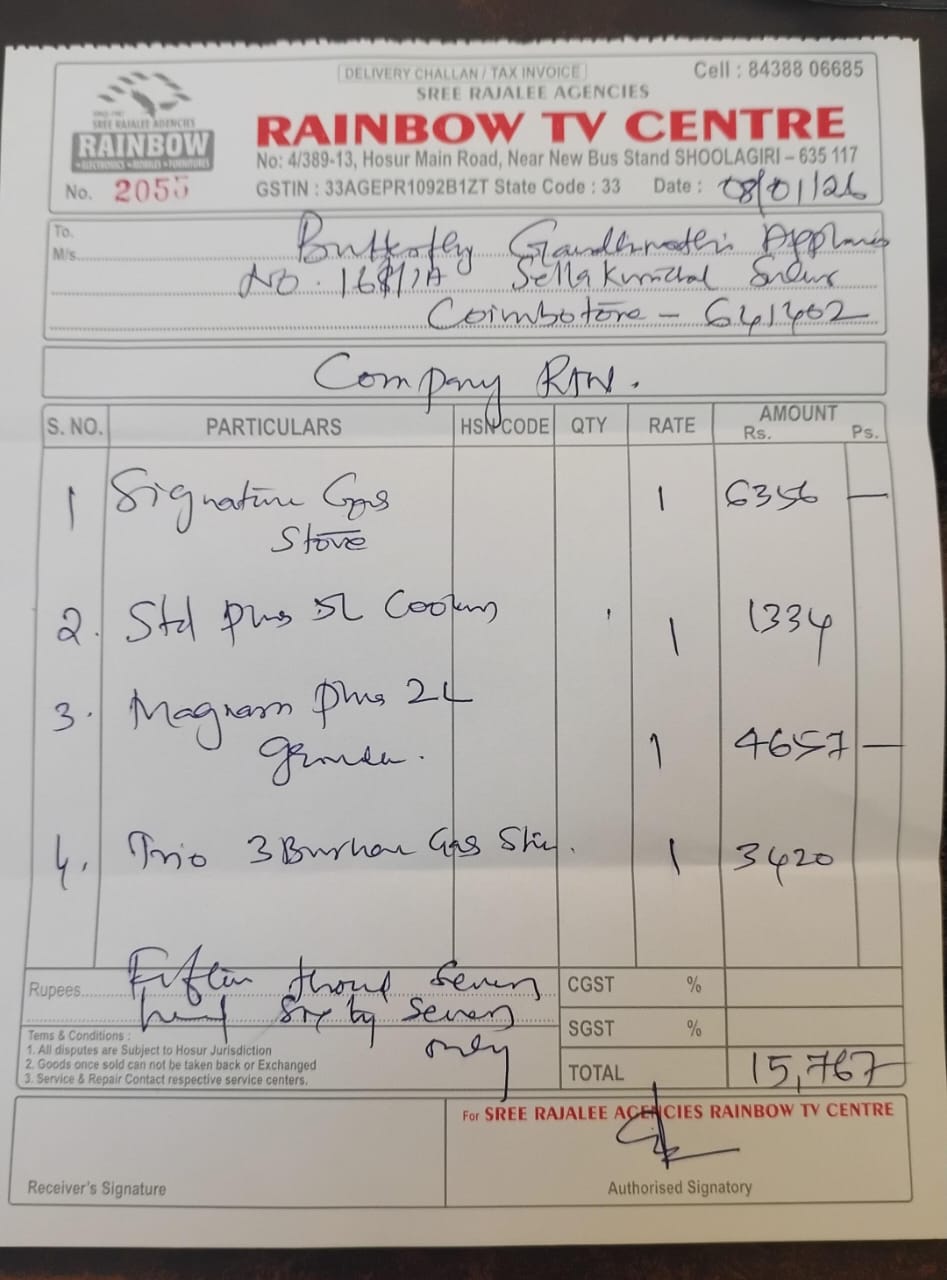 DELIVERY CHALLAN / TAX INVOICE
Cell : 84388 06685
SREE RAJALEE AGENCIES
SREE RAJALEE AGENCIES
RAINBOW
RAINBOW TV CENTRE
No: 4/389-13, Hosur Main Road, Near New Bus Stand SHOOLAGIRI – 635 117
No. 2055
GSTIN : 33AGEPR1092B1ZT State Code : 33 Date : 08/01/26
To.
M/s
Butterfly Gandhimathi
No. Sulur
Coimbotore - 641402
Company
S. NO. PARTICULARS HSN CODE QTY RATE AMOUNT
Rs. Ps.
1 Signature Gas 1 6356 —
Stove
2. Std Plus 5L 1 1334
3. Plus 2L
1 4657 —
4. Trio 3 Gas 1 3420
Rupees Seven
Seven
only
CGST %
SGST %
TOTAL 15,767
Tems & Conditions :
1. All disputes are Subject to Hosur Jurisdiction
2. Goods once sold can not be taken back or Exchanged
3. Service & Repair Contact respective service centers.
For SREE RAJALEE AGENCIES RAINBOW TV CENTRE
Receiver's Signature
Authorised Signatory